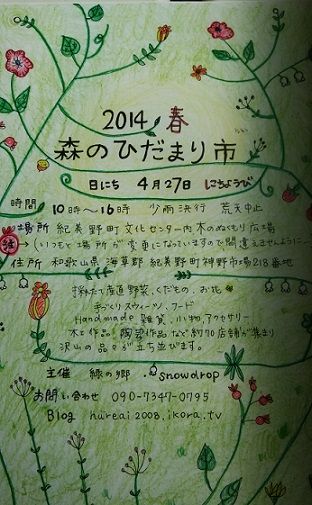 2014 春
森のひだまり市
日にち 4月27日 にちようび
時間 10時〜16時 少雨決行 荒天中止
場所 紀美野町文化センター内 木のぬくもり広場
注→(いつもと場所が変更になっていますので間違えませんように…
住所 和歌山県 海草郡 紀美野町神野市場218番地
とれたて産直野菜、くだもの、お花
手づくりスウィーツ、フード
Handmade 雑貨、小物、アクセサリー
木工作品 陶芸作品 など約70店舗が集まり
沢山の品々が立ち並びます。
主催 緑の郷・snowdrop
お問い合わせ 090-7347-0795
Blog hureai2008.ikora.tv